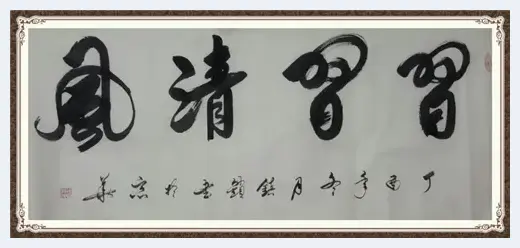 習習清風
丁酉年冬月書於京華